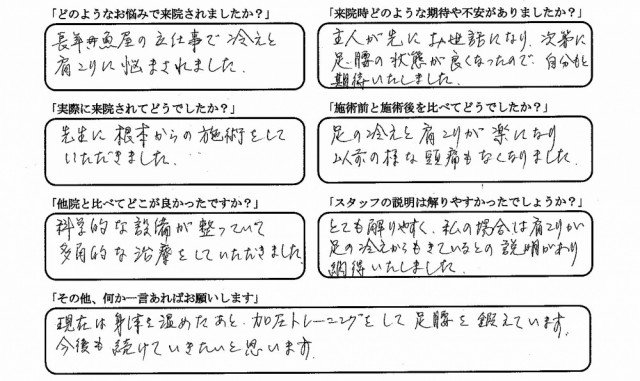 「どのようなお悩みで来院されましたか？」
長年魚屋の立仕事で冷えと
肩こりに悩まされました.
「来院時どのような期待や不安がありましたか？」
主人が先にお世話になり、次第に
足、腰の状態が良くなったので、自分も
期待いたしました.
「実際に来院されてどうでしたか？」
先生に根本からの施術をして
いただきました.
「施術前と施術後を比べてどうでしたか？」
足の冷えと肩こりが楽になり
以前の様な頭痛もなくなりました.
「他院と比べてどこが良かったですか？」
科学的な設備が整っていて
多角的な治療をしていただきました.
「スタッフの説明は解りやすかったでしょうか？」
とても解りやすく、私の場合は肩こりが
足の冷えからもきているとの説明があり
納得いたしました.
「その他、何か一言あればお願いします」
現在は身体を温めたあと、加圧トレーニングをして足腰を鍛えています.
今後も続けていきたいと思います.